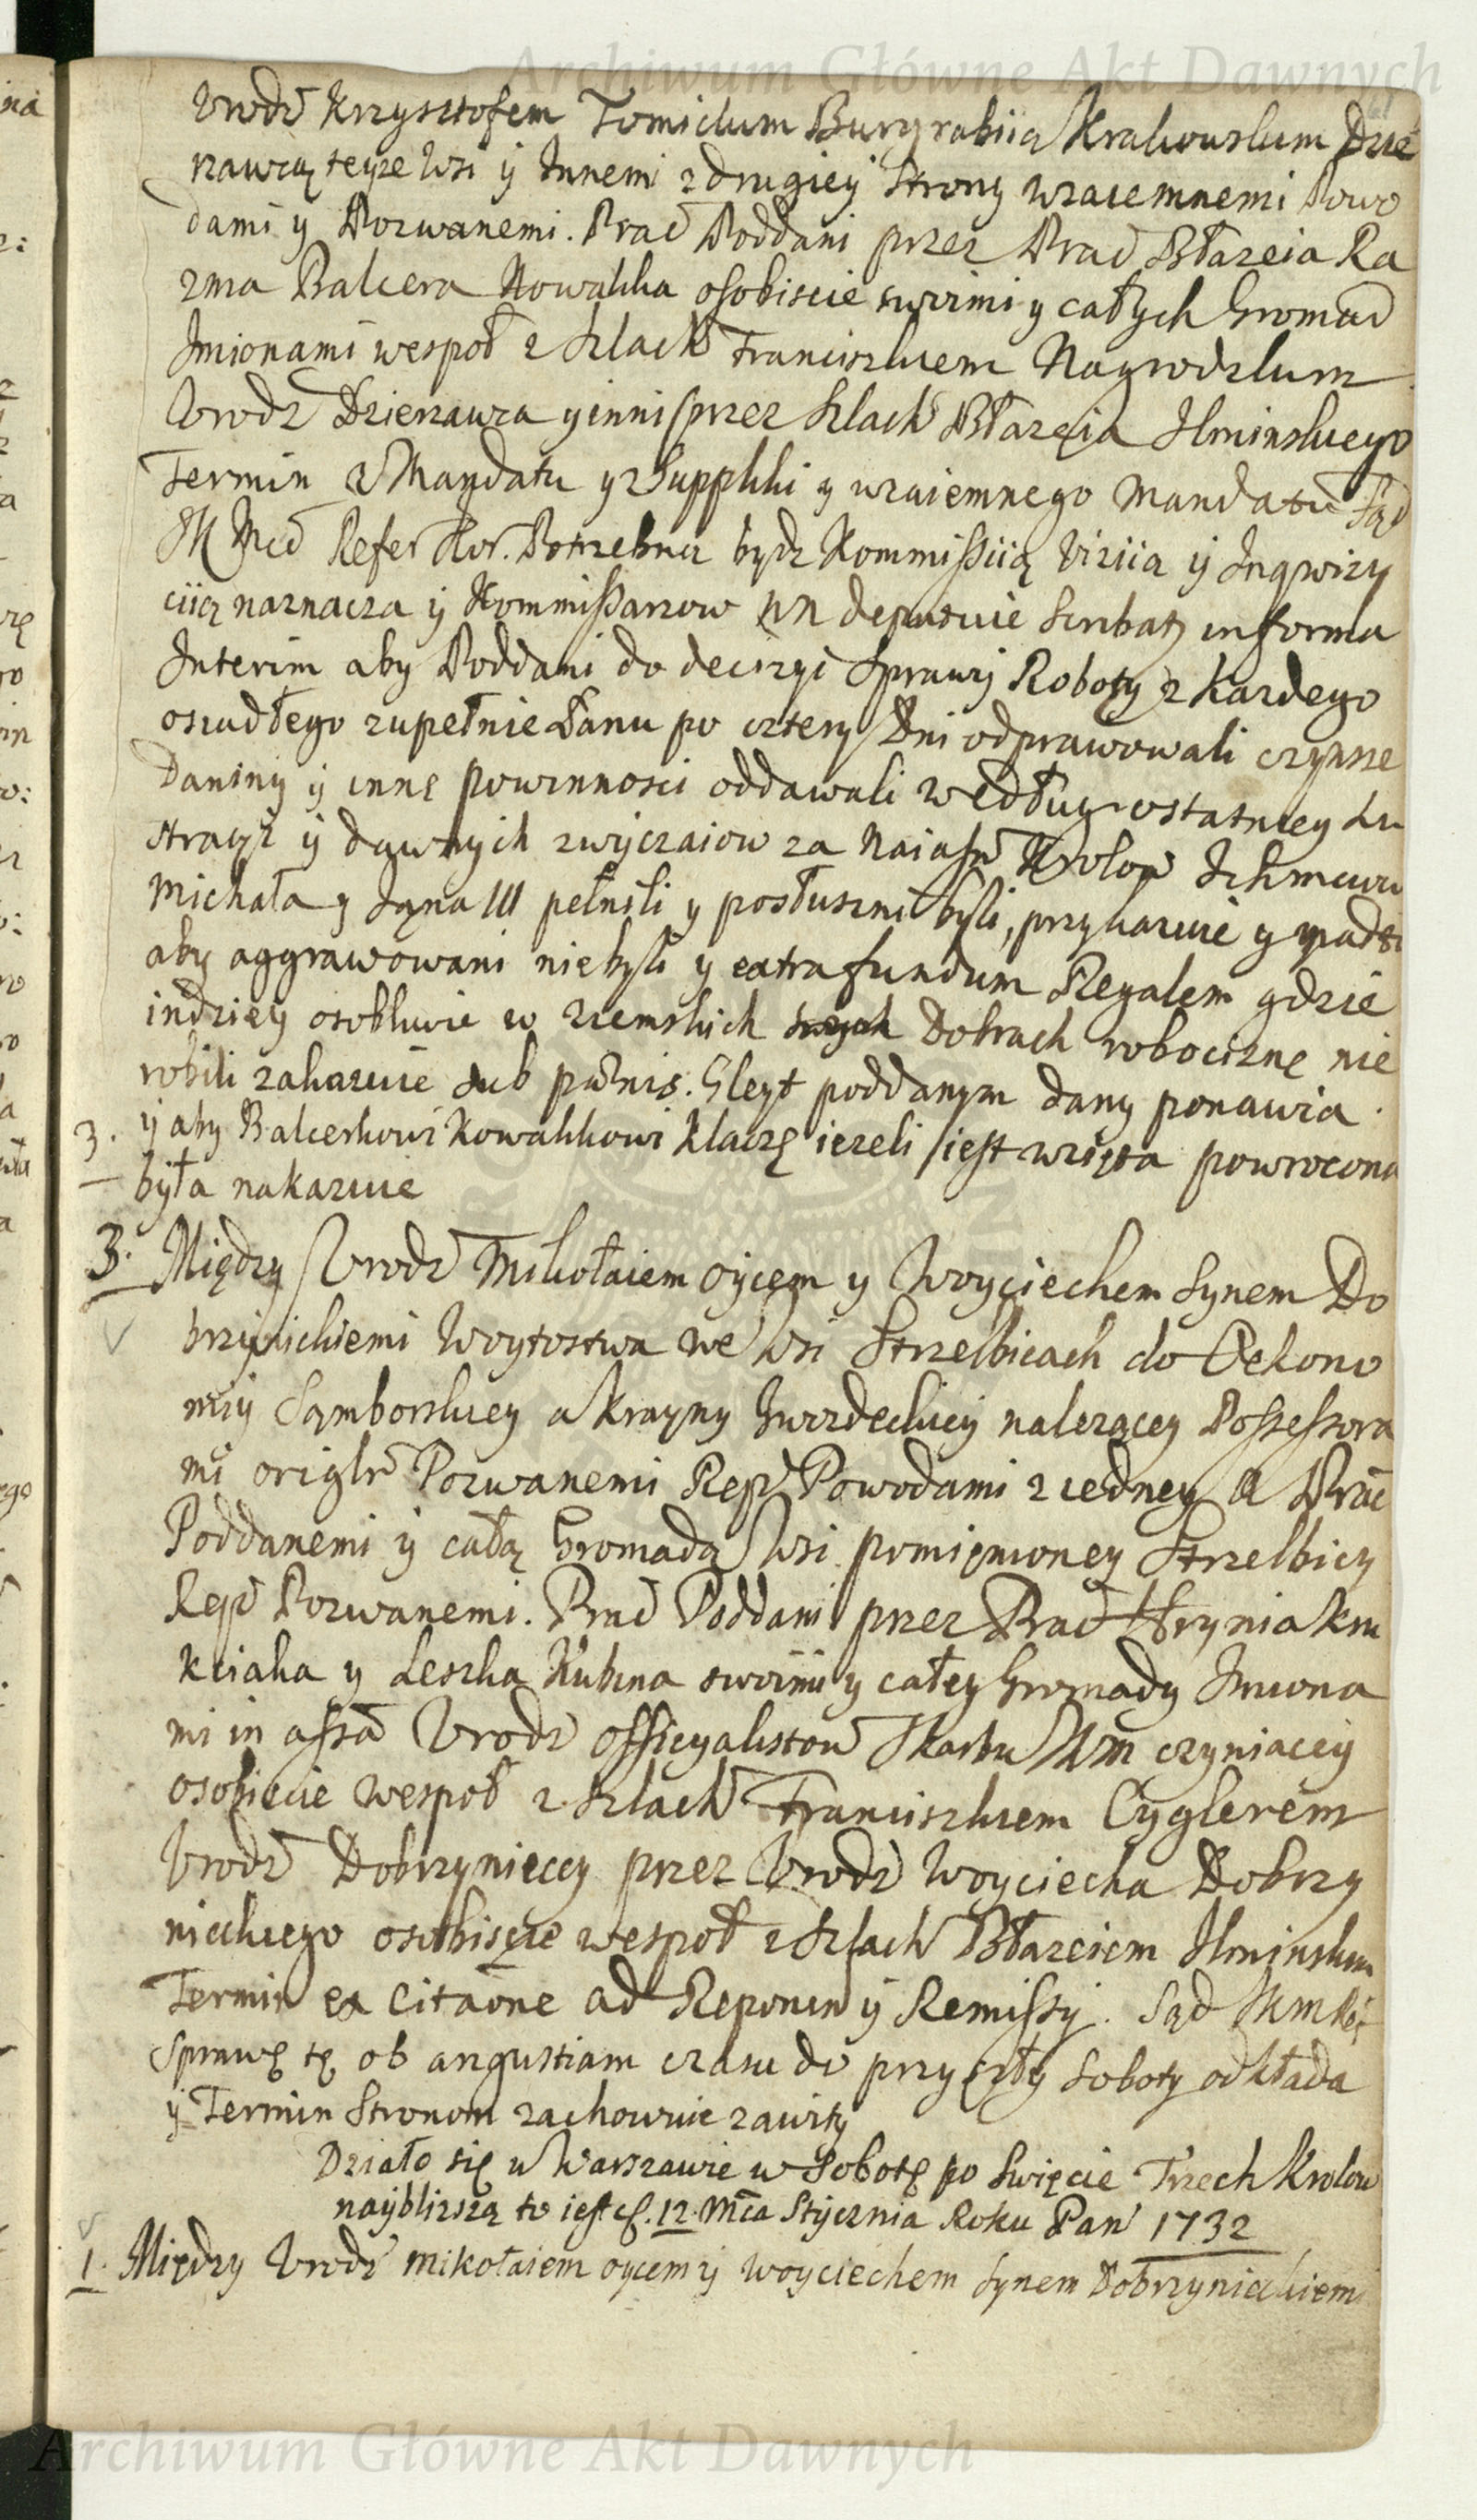 Archiwum Główne Akt Dawnych
Urodz Krzysztofem Tomickim Burgrabiią Krakowskim Dzie
rzawcą teyze Wsi y Innemi z drugiey Strony wzaiemnemi Powo
dami y Pozwanemi. Prac Poddani przez Prac Błazeia Ka
zma Balcera Kowalika osobiscie swoimi y całych Gromad
Imionami wespoł z Szlach Franciszkiem Nagrodzkim
Urodz Dzierzawca y inni przez Szlach Błazeja Ilminskiego
Termin z Mandatu y Suppliki y wzaiemnego Mandatu Sąd
JK Mci Refer Kor. Potrzebną bydz Kommissiią Viziią y Inqwizy
ciią naznacza y Kommissarzow NN deputuie scribatz informa
Interim aby Poddani do decizyi Sprawy Roboty z kazdego
osiadłego zupełnie Łanu po cztery Dni odprawowali czynsze
Daniny y inne powinnosci oddawali według ostatniey Lu
stracyi y dawnych zwyczaiow za Naiasn Krolow Ichmciow
Michała y Jana III pełnili y posłuszni byli, przykazuie y
aby aggrawowani niebyli y extra fundum Regalem gdzie
indziey osobliwie w Ziemskich Dobrach robocizne nie
robili zakazuie sub pænis. Gleyt poddanym dany ponawia.
3. y aby Balcerkowi Kowalikowi Klaczę iezeli iest wzięta powrocona
była nakazuie
3. Między Urodz Mikołaiem oycem y Woyciechem Synem Do
brzynickiemi Woytostwa we Wsi Strzelbicach do Oekono
miy Samborskiey a Krayny Gwozdeckiey nalezącey Possessora
mi origlr Pozwanemi Rep Powodami z iedney a Prac
Poddanemi y całą Gromadą Wsi pomienioney Strzelbicy
Rep Pozwanemi. Prac Poddani przez Prac Hrynia Kru
kciaka y Leszka Kubina swoimi y całey Gromady Imiona
mi in assa Urodz officyalistow Skarbu JKM czyniacey
osobiscie wespoł z Szlach Franciszkiem Cyglerem
Urodz Dobrzynieccy przez Urodz Woyciecha Dobrzy
nieckiego osobiscie wespoł z Szlach Błazeiem Ilminskim
Termin ex Citaone ad Reponen y Remissy. Sąd JKM Ref
Sprawę tę ob angustiam czasu do przyszłey Soboty odkłada
y Termin Stronom zachowuie zawity
Działo się w Warszawie w Sobotę po Swięcie Trzech Krolow
nayblizszą to iest d. 12. Mca Stycznia Roku Pan 1732
1. Między Urodz Mikołaiem oycem y Woyciechem Synem Dobrzynieckiemi
Archiwum Główne Akt Dawnych